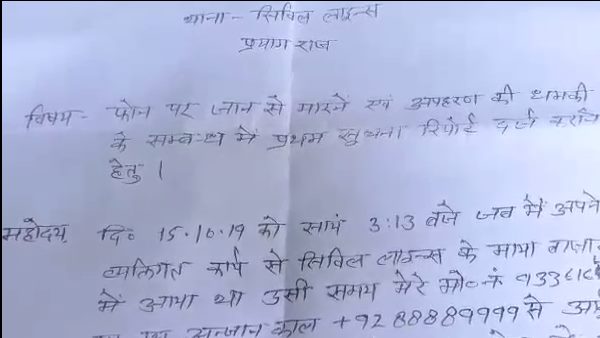 थाना - सिविल लाइन्स
प्रयाग राज
विषय - फोन पर जान से मारने एवं अपहरण की धमकी
के सम्बन्ध में प्रथम सूचना रिपोर्ट दर्ज कराने
हेतु ।
महोदय, दि० 15.10.19 को सायं 3:13 बजे जब मैं अपने
व्यक्तिगत कार्य से सिविल लाइन्स के माया बाजार
में आया था उसी समय मेरे मो० नं
अन्जान काल +92 88889999 से